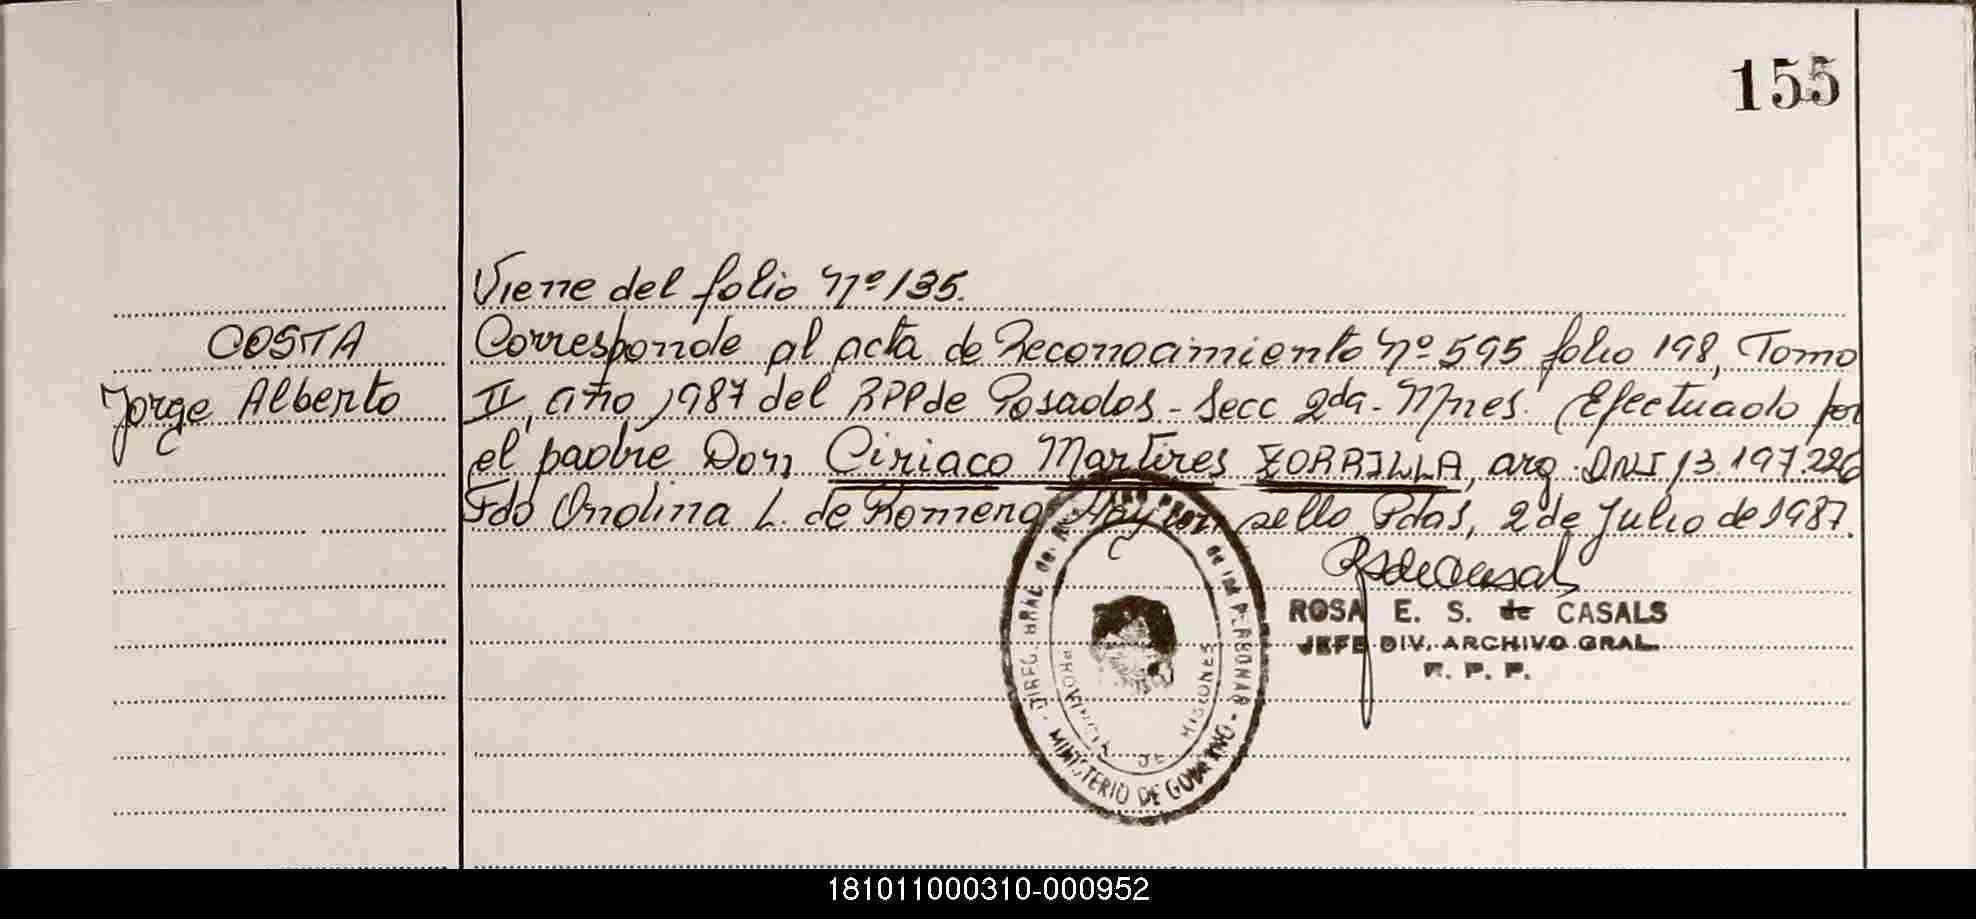 155
Viene del folio Nº 135.
COSTA
Jorge Alberto
Corresponde al acta de Reconocimiento Nº 595 folio 198, Tomo
II, año 1987 del RPP de Posadas - Secc 2da - Mnes. Efectuado por
el padre Don Ciriaco Martires ZORRILLA, arg. DNI 13.197.226
Fdo Ondina L. de Romero. Hay un sello Pdas, 2 de Julio de 1987.
ROSA E. S. de CASALS
JEFE DIV. ARCHIVO GRAL.
R. P. P.
MINISTERIO DE GOBIERNO
PROVINCIA DE MISIONES
181011000310-000952